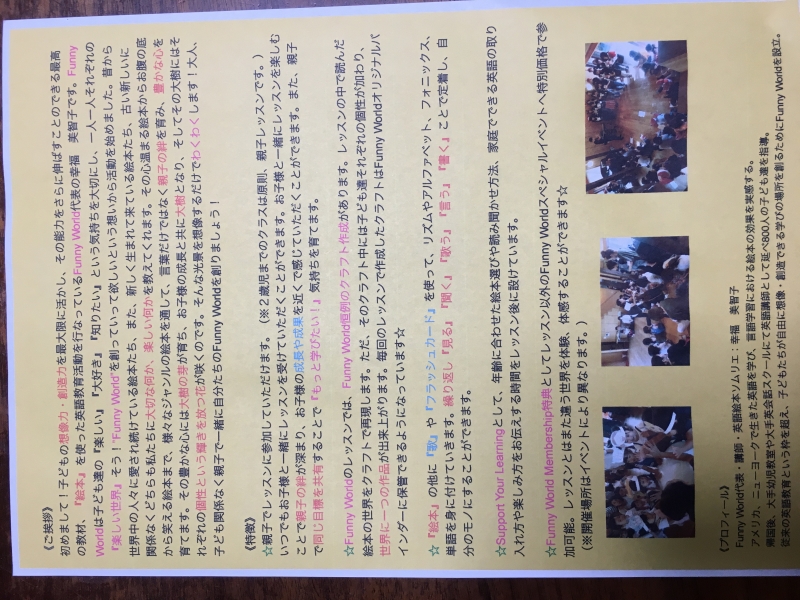 《ご挨拶》
初めまして！子どもの想像力・創造力を最大限に活かし、その能力をさらに伸ばすことのできる最高
の教材、『絵本』を使った英語教育活動を行なっているFunny World代表の幸福　美智子です。Funny
Worldは子ども達の『楽しい』『大好き』『知りたい』という気持ちを大切にし、一人一人それぞれの
『楽しい世界』そう！"Funny World"を創っていって欲しいという想いから活動を始めました。昔から
世界中の人々に愛され続けている絵本たち、また、新しく生まれて来ている絵本たち、古い新しいに
関係なくどちらも私たちに大切な何か、楽しい何かを教えてくれます。その心温まる絵本からお腹の底
から笑える絵本まで、様々なジャンルの絵本を通して、言葉だけではなく親子の絆を育み、豊かな心を
育てます。その豊かな心には大樹の芽が育ち、お子様の成長と共に大樹となり、そしてその大樹にはそ
れぞれの個性という輝きを放つ花が咲くのです。そんな光景を想像するだけでわくわくします！大人、
子ども関係なく親子で一緒に自分たちのFunny Worldを創りましょう！
《特徴》
☆親子でレッスンに参加していただけます。（※２歳児までのクラスは原則、親子レッスンです。）
いつでもお子様と一緒にレッスンを受けていただくことができます。お子様と一緒にレッスンを楽しむ
ことで親子の絆が深まり、お子様の成長や成果を近くで感じていただくことができます。また、親子
で同じ目標を共有することで『もっと学びたい！』気持ちを育てます。
☆Funny Worldのレッスンでは、Funny World恒例のクラフト作成があります。レッスンの中で読んだ
絵本の世界をクラフトで再現します。ただ、そのクラフト中には子ども達それぞれの個性が加わり、
世界に一つの作品が出来上がります。毎回のレッスンで作成したクラフトはFunny Worldオリジナルバ
インダーに保管できるようになっています☆
☆『絵本』の他に『歌』や『フラッシュカード』を使って、リズムやアルファベット、フォニックス、
単語を身に付けていきます。繰り返し『見る』『聞く』『歌う』『言う』『書く』ことで定着し、自
分のモノにすることができます。
☆Support Your Learningとして、年齢に合わせた絵本選びや読み聞かせ方法、家庭でできる英語の取り
入れ方や楽しみ方をお伝えする時間をレッスン後に設けています。
☆Funny World Membership特典としてレッスン以外のFunny Worldスペシャルイベントへ特別価格で参
加可能。レッスンとはまた違う世界を体験、体感することができます☆
（※開催場所はイベントにより異なります。）
《プロフィール》
Funny World代表・講師・英語絵本ソムリエ：幸福　美智子
アメリカ、ニューヨークで生きた英語を学び、言語学習における絵本の効果を実感する。
帰国後、大手幼児教室や大手英会話スクールにて英語講師として延べ800人の子ども達を指導。
従来の英語教育という枠を超え、子どもたちが自由に想像・創造できる学びの場所を創るためにFunny Worldを設立。